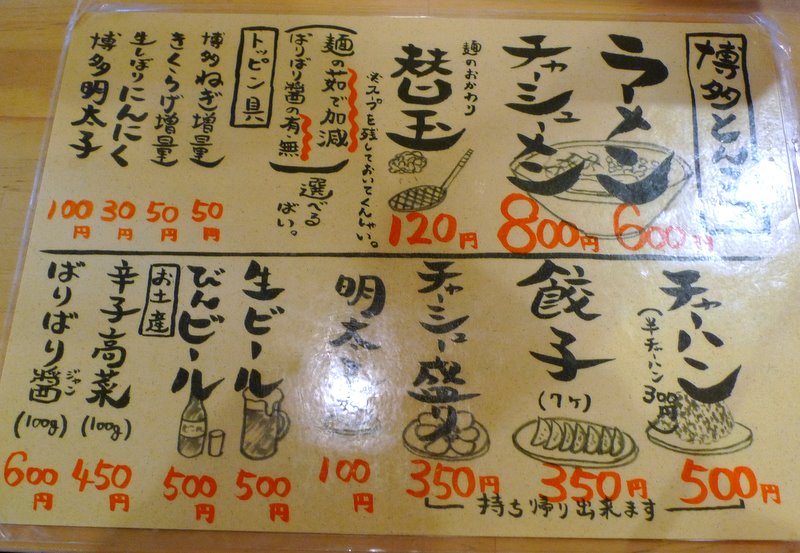 博多とん
ラーメン
600円
チャーシューメン
800円
麺のおかわり
替玉
120円
※スープを残しておいてくんしゃい。
麺の茹で加減
ばりばり醤の有・無
選べるばい。
トッピン具
博多ねぎ増量
50円
きくらげ増量
50円
生しぼりにんにく
30円
博多明太子
100円
チャーハン
(半チャーハン300円)
500円
餃子
(7ケ)
350円
チャーシュー盛り
350円
持ち帰り出来ます
明太
100円
生ビール
500円
びんビール
500円
お土産
辛子高菜
(100g)
450円
ばりばり醤
ジャン
(100g)
600円